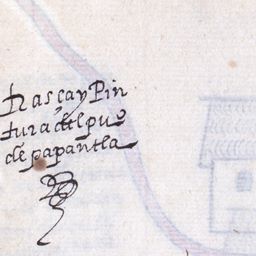 traça y Pin
tura del pue
de papantla